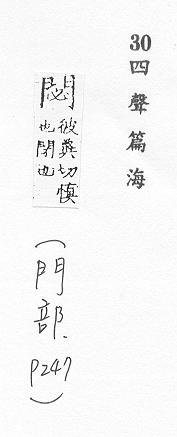 30 四聲篇海
閟
彼冀切慎
也閉也
(門部. P247)